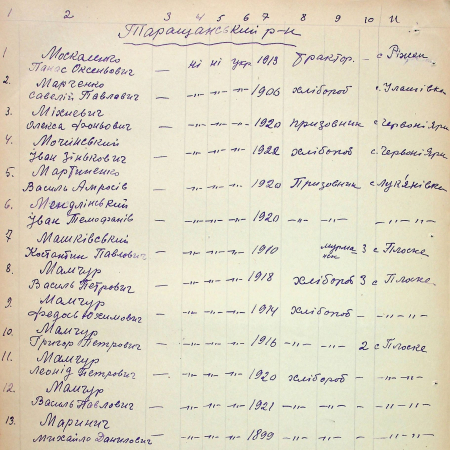 1 2 3 4 5 6 7 8 9 10 11
Таращанський р-н
1 Москаленко
Панас Оксеньович — ні ні укр 1913 трактор. — с Ріжки
2. Марченко
Савелій Павлович — -"- -"- -"- 1906 хлібороб с. Улашівка
3. Міхневич
Олекса Фоньович — -"- -"- -"- 1920 призовник с Червоні Яри
4. Мочінський
Іван Зінькович — -"- -"- -"- 1922 хлібороб с. Червоні Яри
5. Мартиненко
Василь Амросів — -"- -"- -"- 1920 Призовник с Лук'янівка
6. Мендлінський
Іван Темофанів — -"- -"- -"- 1920 -"- -"- — -"- -"-
7 Машківський
Костантин Павлович — -"- -"- -"- 1910 3 с Плоске
8. Мамчур
Василь Петрович — -"- -"- -"- 1918 хлібороб 3 с Плоске
9. Мамчур
Федось Юхимович — -"- -"- -"- 1914 хлібороб — -"- -"-
10. Мамчур
Григор Петрович — -"- -"- -"- 1916 -"- -"- 2 с Плоске
11. Мамчур
Леонід Петрович — -"- -"- -"- 1920 хлібороб — -"- -"-
12. Мамчур
Василь Павлович — -"- -"- -"- 1921 -"- -"- — -"- -"-
13. Маринич
Михайло Данилович — -"- -"- -"- 1899 -"- -"- — -"- -"-